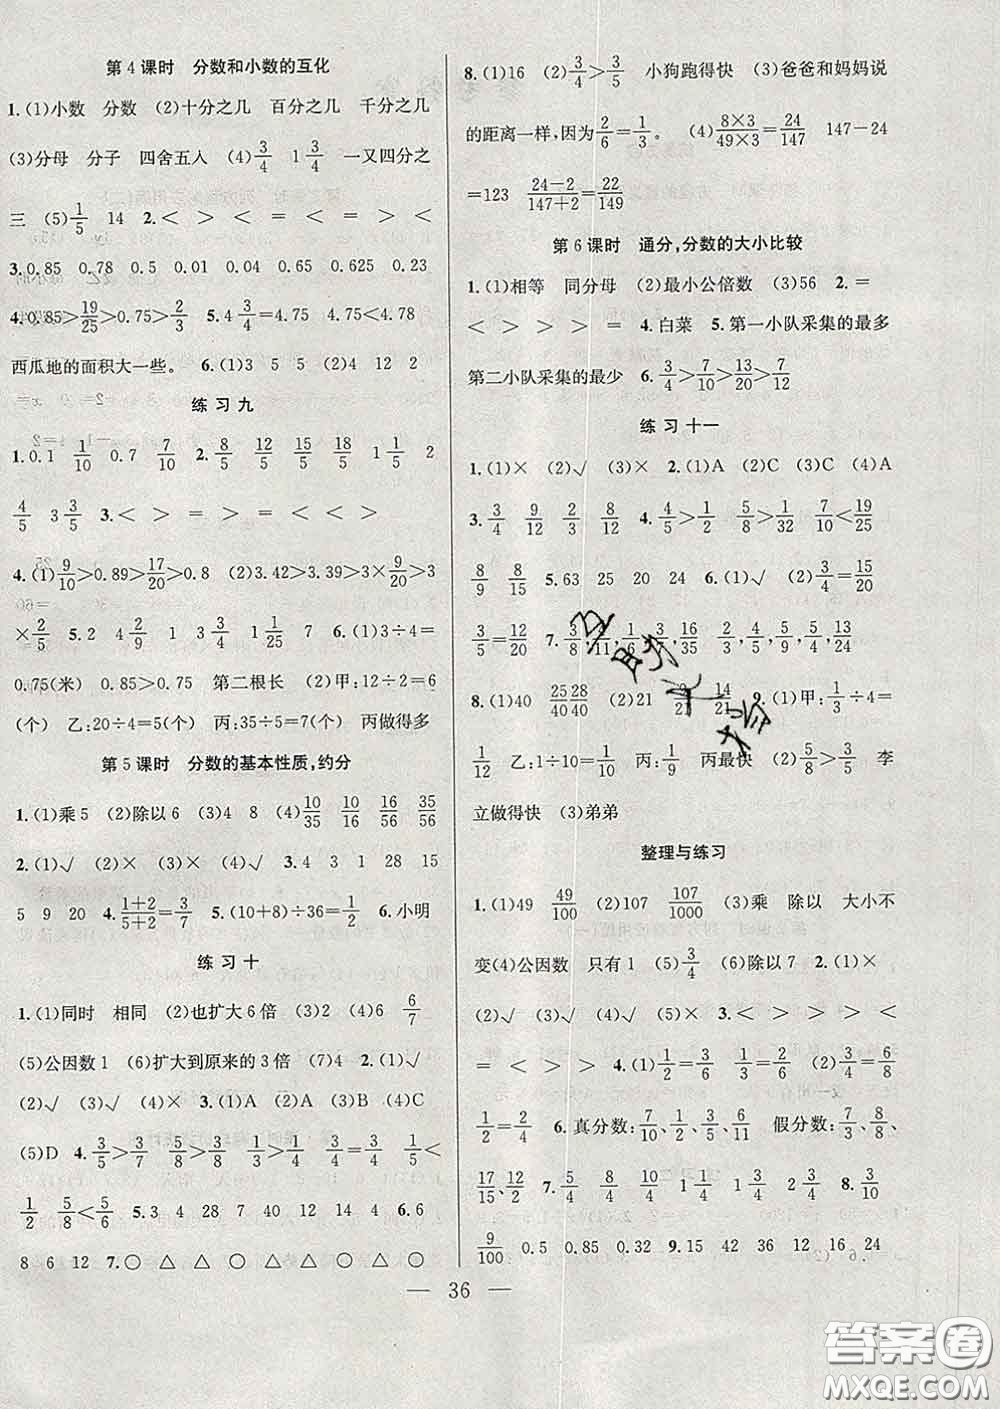 第4课时 分数和小数的互化
1.(1)小数 分数 (2)十分之几 百分之几 千分之几
(3)分母 分子 四舍五入 (4)3/4 1 3/4 一又四分之
三 (5)1/5 14 2.< > < = < = > <
3.0.85 0.78 0.5 0.45 0.76 0.625 0.23
4.0.85>19/25>0.75>2/3 5.4 3/4=4.75 4.75<4.78
西瓜地的面积大一些。 6.(1)3 5 (2)4 12 2
练习九
1.0.1 1/10 0.7 7/10 2.8/5 12/5 15/5 18/5 1 1/5 2
4/5 3 3/5 3.< > = > = < < >
4.(1)9/10>0.89>17/20>0.8 (2)3.42>3.39>3×9/20>3
×2/5 5.2 4 2/9 1 3/4 1 1/25 7 6.(1)3÷4=
0.75(米) 0.85>0.75 第二根长 (2)甲:12÷2=6
(个) 乙:20÷4=5(个) 丙:35÷5=7(个) 丙做得多
第5课时 分数的基本性质,约分
1.(1)乘5 (2)除以6 (3)4 8 (4)10/35 10/16 16/56 35/56
2.(1)√ (2)× (3)× (4)√ 3.4 3 1 28 15
5 9 20 4.1+2/5+2=3/7 5.(10+8)÷36=1/2 6.小明
练习十
1.(1)同时 相同 (2)也扩大6倍 (3)2 (4)6 6/7
(5)公因数1 (6)扩大到原来的3倍 (7)4 2.(1)√
(2)√ (3)√ (4)× 3.(1)A (2)A (3)B (4)C
(5)D 4.3/5>3/7 5/8>3/8 1/3>1/4 3/4>1/4 2/6<
1/2 5/8<5/6 5.3 4 28 7 40 12 14 4 6.6
8 6 12 7.○ △ △ ○ △ ○ △ ○ ○
8.(1)16 (2)3/4>3/5 小狗跑得快 (3)爸爸和妈妈说
的距离一样,因为2/6=1/3。 (4)8×3/49×3=24/147 147-24
=123 24-2/147+2=22/149
第6课时 通分,分数的大小比较
1.(1)相等 同分母 (2)最小公倍数 (3)56 2.=
< > > > = < 4.白菜 5.第一小队采集的最多
第二小队采集的最少 6.3/4>7/10>13/20>7/12
练习十一
1.(1)× (2)√ (3)× 2.(1)A (2)C (3)C (4)A
3.3/4 9/12 2/3 8/12 4.4/5>1/2 5/8>1/32 7/10<19/25
8/9 8/15 5.63 25 20 24 6.(1)√ (2)3/4=15/20
3/5=12/20 7.3/8, /11,1/6,3/7,16/35 2/3,4/5,5/9,5/14,13/24
8.(1)40 25/40 28/40 (2)21 /21 14/21 9.(1)甲:1/3÷4=
1/12 乙:1÷10=1/10 丙:1/9 丙最快 (2)5/8>3/5 李
立做得快 (3)弟弟
整理与练习
1.(1)49 49/100 (2)107 107/1000 (3)乘 除以 大小不
变(4)公因数 只有1 (5)3/4 (6)除以7 2.(1)×
(2)√ (3)√ (4)√ 3.> < > > > <
= < > > 4.(1)1/2=3/6 1/3=2/6 (2)3/4=6/8
1/2=2/4 6.真分数:7/10、1/5、3/4、6/11 假分数:7/3、8/8、
17/15、12/2 7.5/4 8/4 10/4 1 1/4 2 2 2/4 8.3/10
9/100 0.5 0.85 0.32 9.15 32 36 12 16 24
— 36 —
答案圈
MXQE.COM